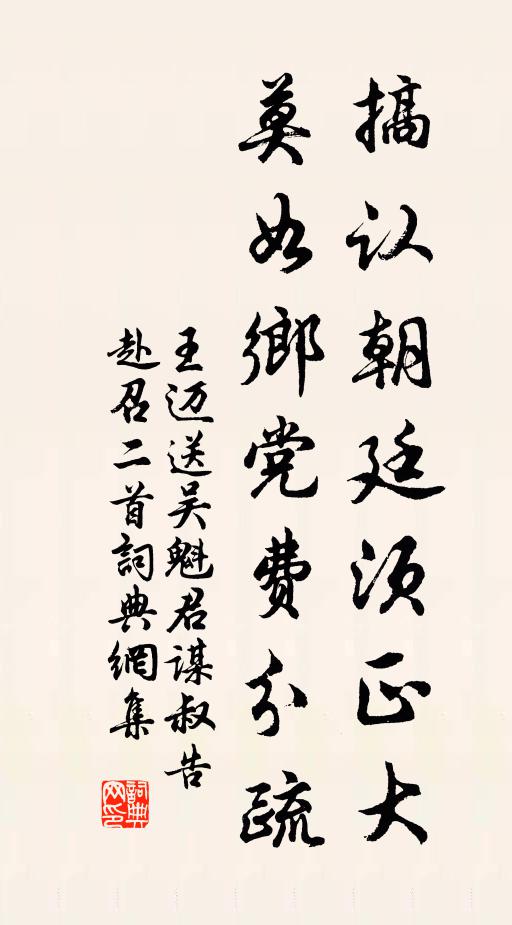 搞认朝廷须正大
莫如鄉党費分疏
王迈送吴魁君谋叔告
赴召二首詞典網集
詞典网印